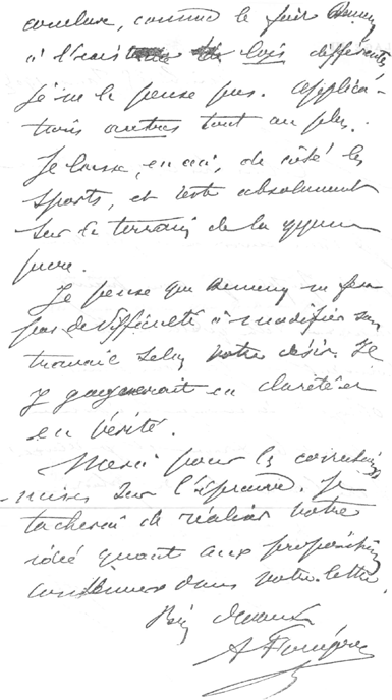 conclure, comme le fait Demeny
à l'existence de lois différentes
je ne le pense pas. Applica-
tions autres tout au plus.
Je laisse, en ceci, de côté les
sports, et reste absolument
sur le terrain de la gymn
pure.
Je pense que Demeny ne fera
pas de difficulté à modifier son
travail selon votre désir. Il
y gagnerait en clarté et
en vérité.
Merci pour les corrections
mises sur l'épreuve. Je
tacherai de réaliser votre
idée quant aux propositions
contenues dans votre lettre.
Bien dévoué